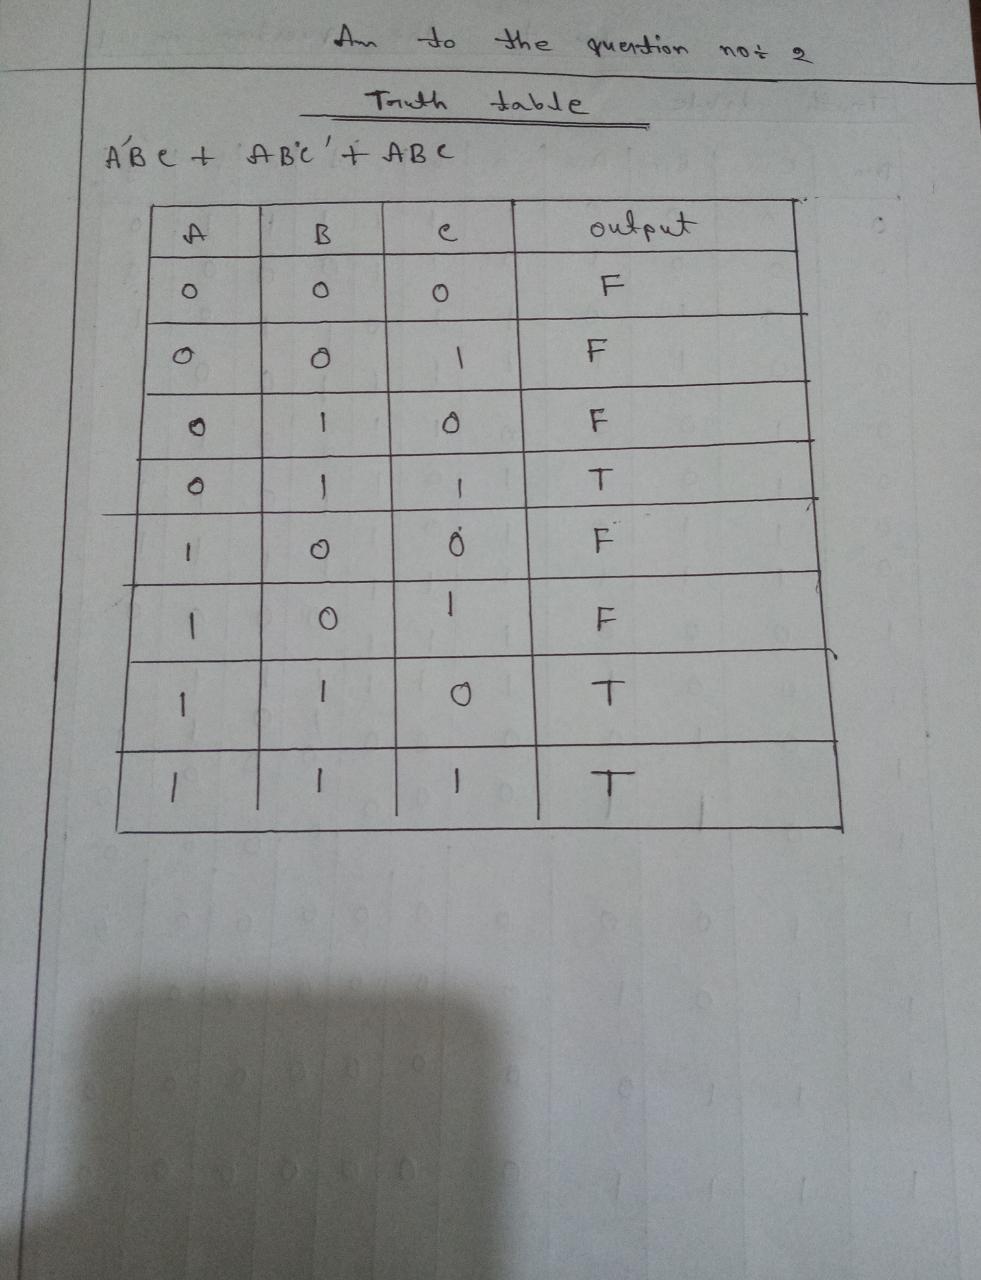 Ans to the question no: 2
Truth table
A'BC + AB'C' + ABC
A B C output
0 0 0 F
0 0 1 F
0 1 0 F
0 1 1 T
1 0 0 F
1 0 1 F
1 1 0 T
1 1 1 T